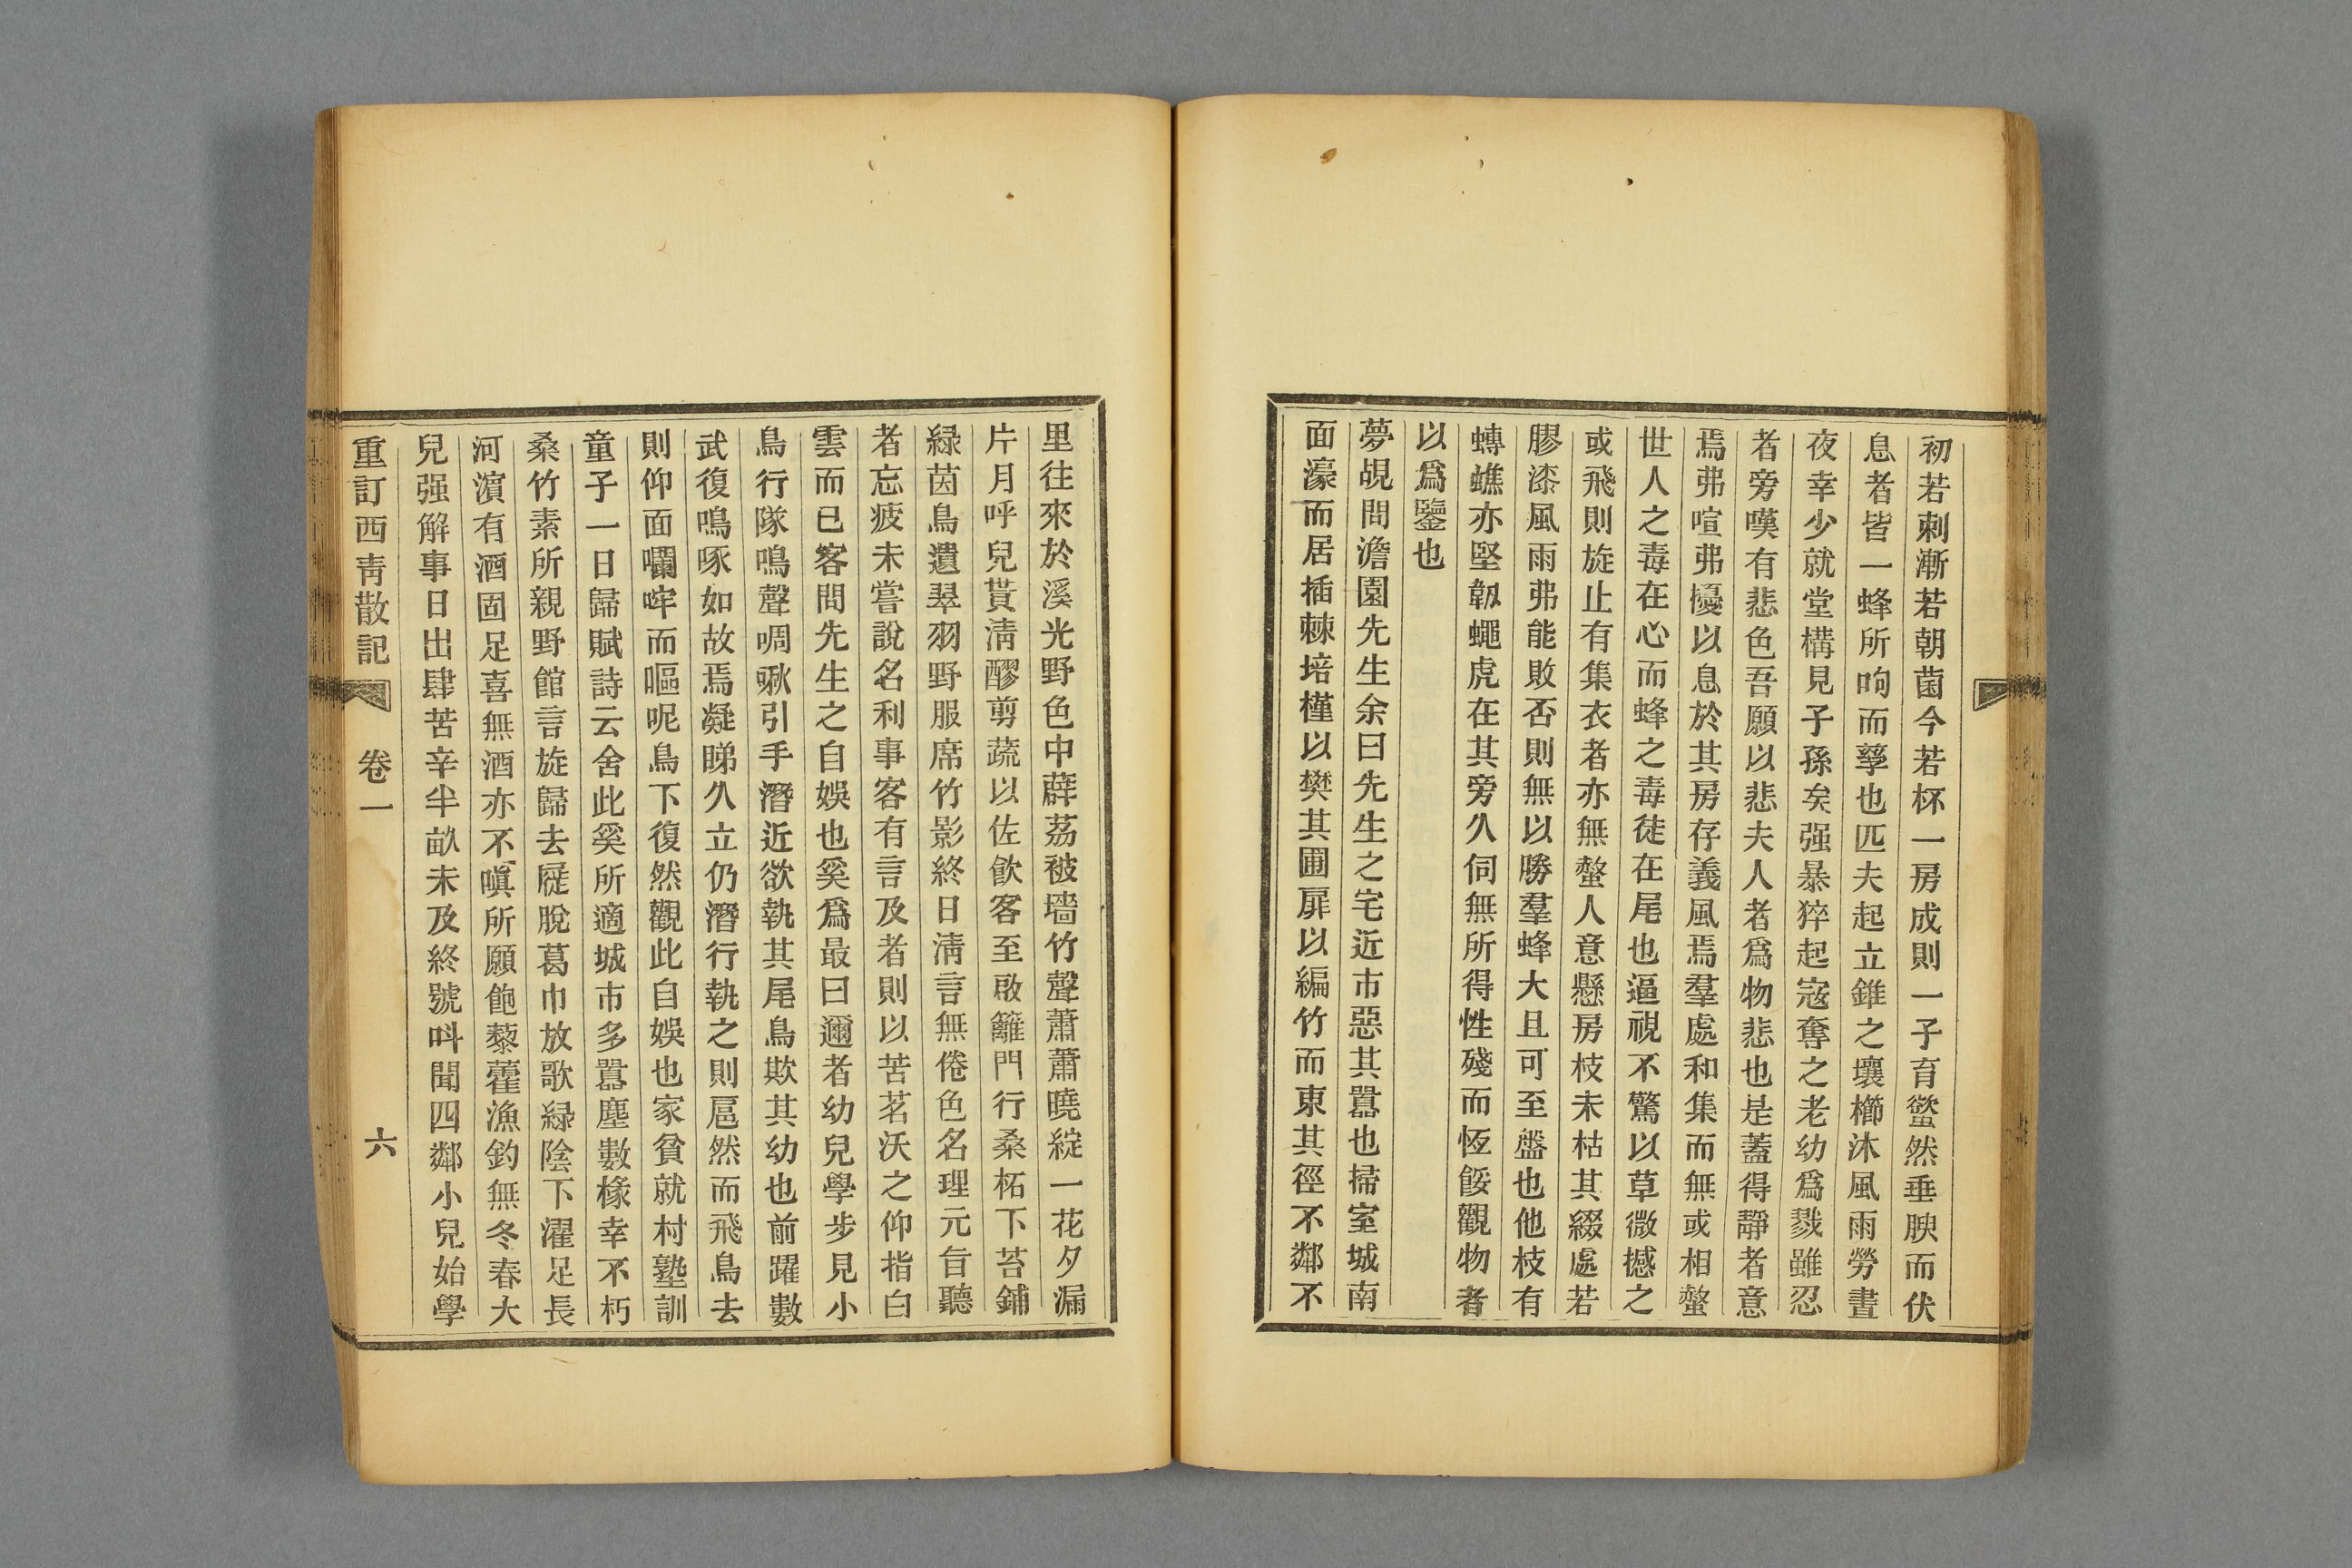 初若刺漸若朝菌今若杯一房成則一子育蠁然垂腴而伏
息者皆一蜂所呴而孳也匹夫起立錐之壤櫛沐風雨勞晝
夜幸少就堂構見子孫矣强暴猝起寇奪之老幼爲戮雖忍
者旁嘆有悲色吾願以悲夫人者爲物悲也是蓋得靜者意
焉弗喧弗擾以息於其房存義風焉羣處和集而無或相螫
世人之毒在心而蜂之毒徒在尾也逼視不驚以草微撼之
或飛則旋止有集衣者亦無螫人意懸房枝未枯其綴處若
膠漆風雨弗能敗否則無以勝羣蜂大且可至盤也他枝有
蟳蟭亦堅韌蠅虎在其旁久伺無所得性殘而恆餒觀物者
以爲鑒也
夢覘問澹園先生余曰先生之宅近市惡其囂也掃室城南
面濠而居插棘培槿以樊其圃扉以編竹而東其徑不鄰不
里往來於溪光野色中薜荔被墻竹聲蕭蕭曉綻一花夕漏
片月呼兒貰淸醪剪蔬以佐飮客至啟籬門行桑柘下苔鋪
緑茵鳥遺翠羽野服席竹影終日淸言無倦色名理元旨聽
者忘疲未嘗說名利事客有言及者則以苦茗沃之仰指白
雲而已客問先生之自娛也奚爲最曰邇者幼兒學步見小
鳥行隊鳴聲啁啾引手潛近欲執其尾鳥欺其幼也前躍數
武復鳴啄如故焉凝睇久立仍潛行執之則扈然而飛鳥去
則仰面囒哰而嘔呢鳥下復然觀此自娛也家貧就村塾訓
童子一日歸賦詩云舍此奚所適城市多囂塵數椽幸不朽
桑竹素所親野館言旋歸去屣脫葛巾放歌緑陰下濯足長
河濱有酒固足喜無酒亦不嗔所願飽藜藿漁釣無冬春大
兒强解事日出肆苦辛半畝未及終號呌聞四鄰小兒始學
重訂西靑散記 卷一 六